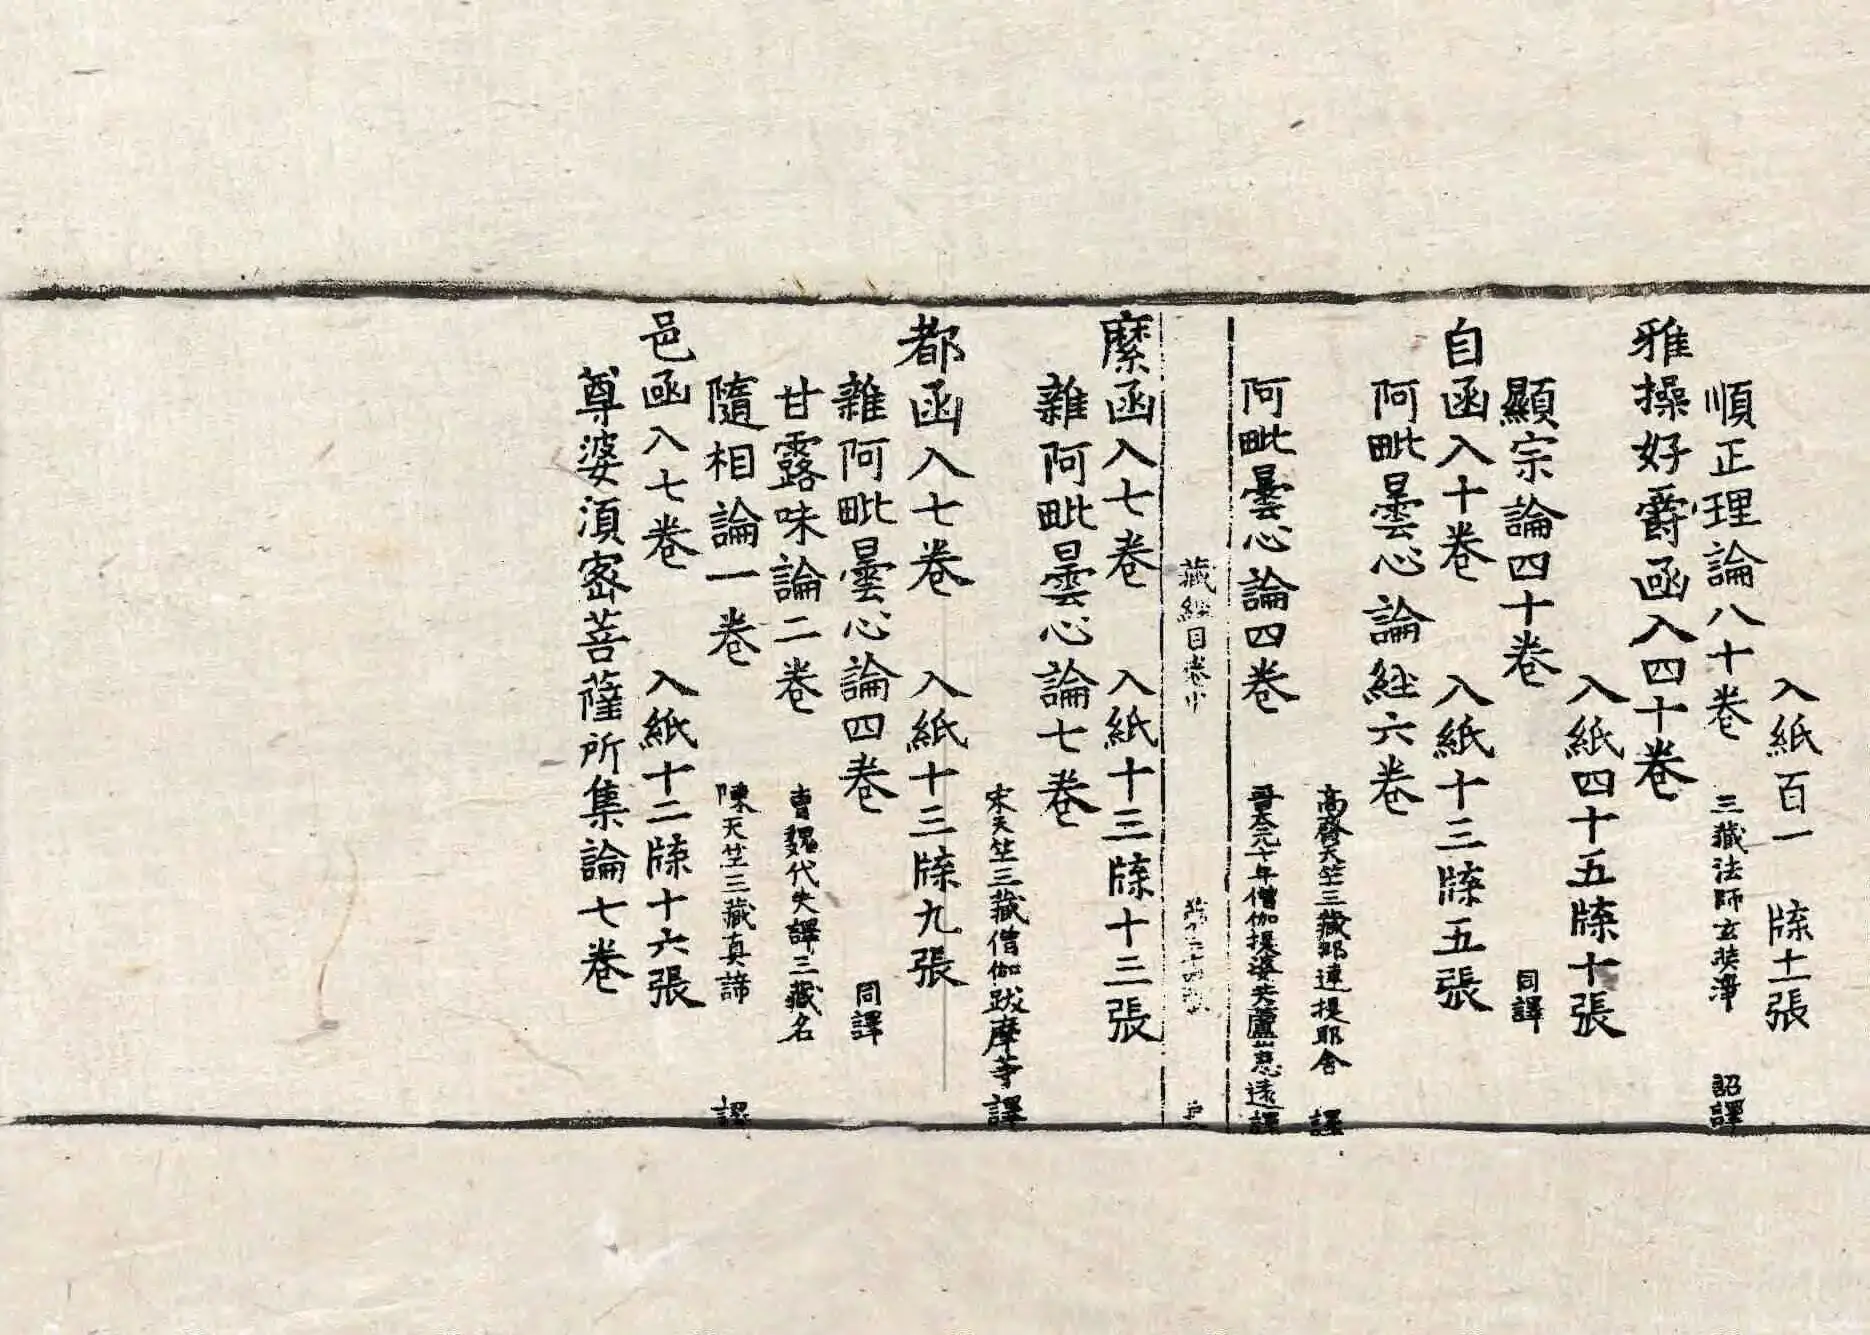 入紙百一　牍十一張
順正理論八十卷　三藏法師玄奘　詔譯
雅操好爵函入四十卷
入紙四十五牍十張
顯宗論四十卷　同譯
自函入十卷　入紙十三牍五張
阿毗曇心論経六卷
高齊天竺三藏那連提耶舍　譯
阿毗曇心論四卷　晉太元十年僧伽提婆共蘆山惠遠譯
藏経目卷中　第三十四張
縻函入七卷　入紙十三牍十三張
雜阿毗曇心論七卷
宋天竺三藏僧伽跋摩等譯
都函入七卷　入紙十三牍九張
雜阿毗曇心論四卷　同譯
甘露味論二卷　曹魏代失譯三藏名
隨相論一卷　陳天竺三藏真諦　譯
邑函入七卷　入紙十二牍十六張
尊婆湏宻菩薩所集論七卷